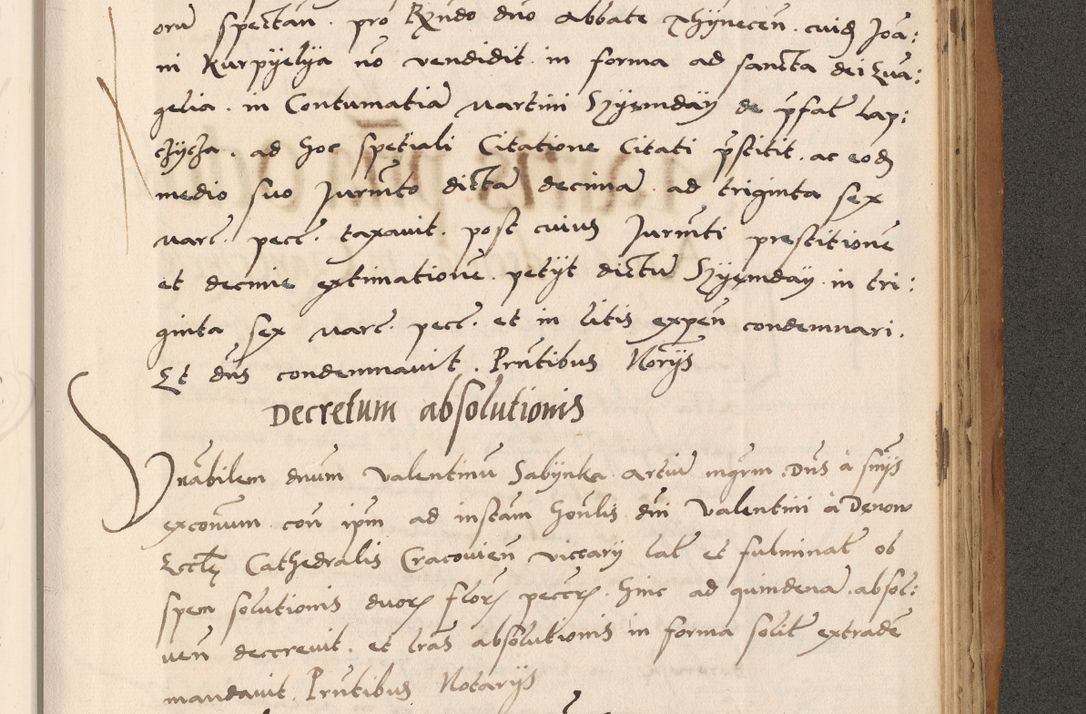 orū spectan̄. pro Rx̄ndo dno Abbate Thynecen̄. cuidā Joā:
ni Kurpyelya nō vendidit. in forma ad sancta dei Eva:
gelia. in Contumatiā Martini Szyemdāy de p̄fat̄ Lap:
czycza. ad hoc spetiali Citatione Citati p̄stitit. ac eodē
medio suo Jurm̄to dictā decimā ad triginta sex
marc̄. pecc̄. taxavit. post cuius Jurm̄ti prestitionē
et decime extimationē. petyt dictū Szyemdāy. in tri:
ginta sex Marc̄. pecc̄. et in litis expen̄ condemnari.
Et dn̄s condemnavit. Prn̄tibus Norȳs
Decretum absolutionis
Vnābilem dnum Valentinū Sabynka Artiū mgrm̄. Dn̄s à sn̄ijs
exconum̄. con ipm̄ ad instam̄ honlis dni Valentini à Denow
Eccl̄ę Cathedralis Cracovien̄ viccarij lat̄ et fulminat̄ ob
spem solutionis duorū florū peccrū. hinc ad quindenā. absol:
ven̄ deccrevit. et lrās absolutionis in forma solit̄ extradē
mandavit. Prn̄tibus Notarijs